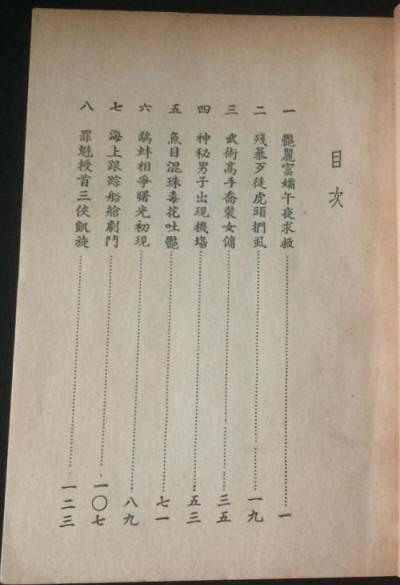 目次
一 艷麗富孀午夜求救……一
二 殘暴歹徒虎頭捫虱……一九
三 武術高手喬裝女傭……三五
四 神秘男子出現機場……五三
五 魚目混珠毒花吐艷……七一
六 鷸蚌相爭曙光初現……八九
七 海上跟踪船艙劇鬥……一〇七
八 罪魁授首三俠凱旋……一二三